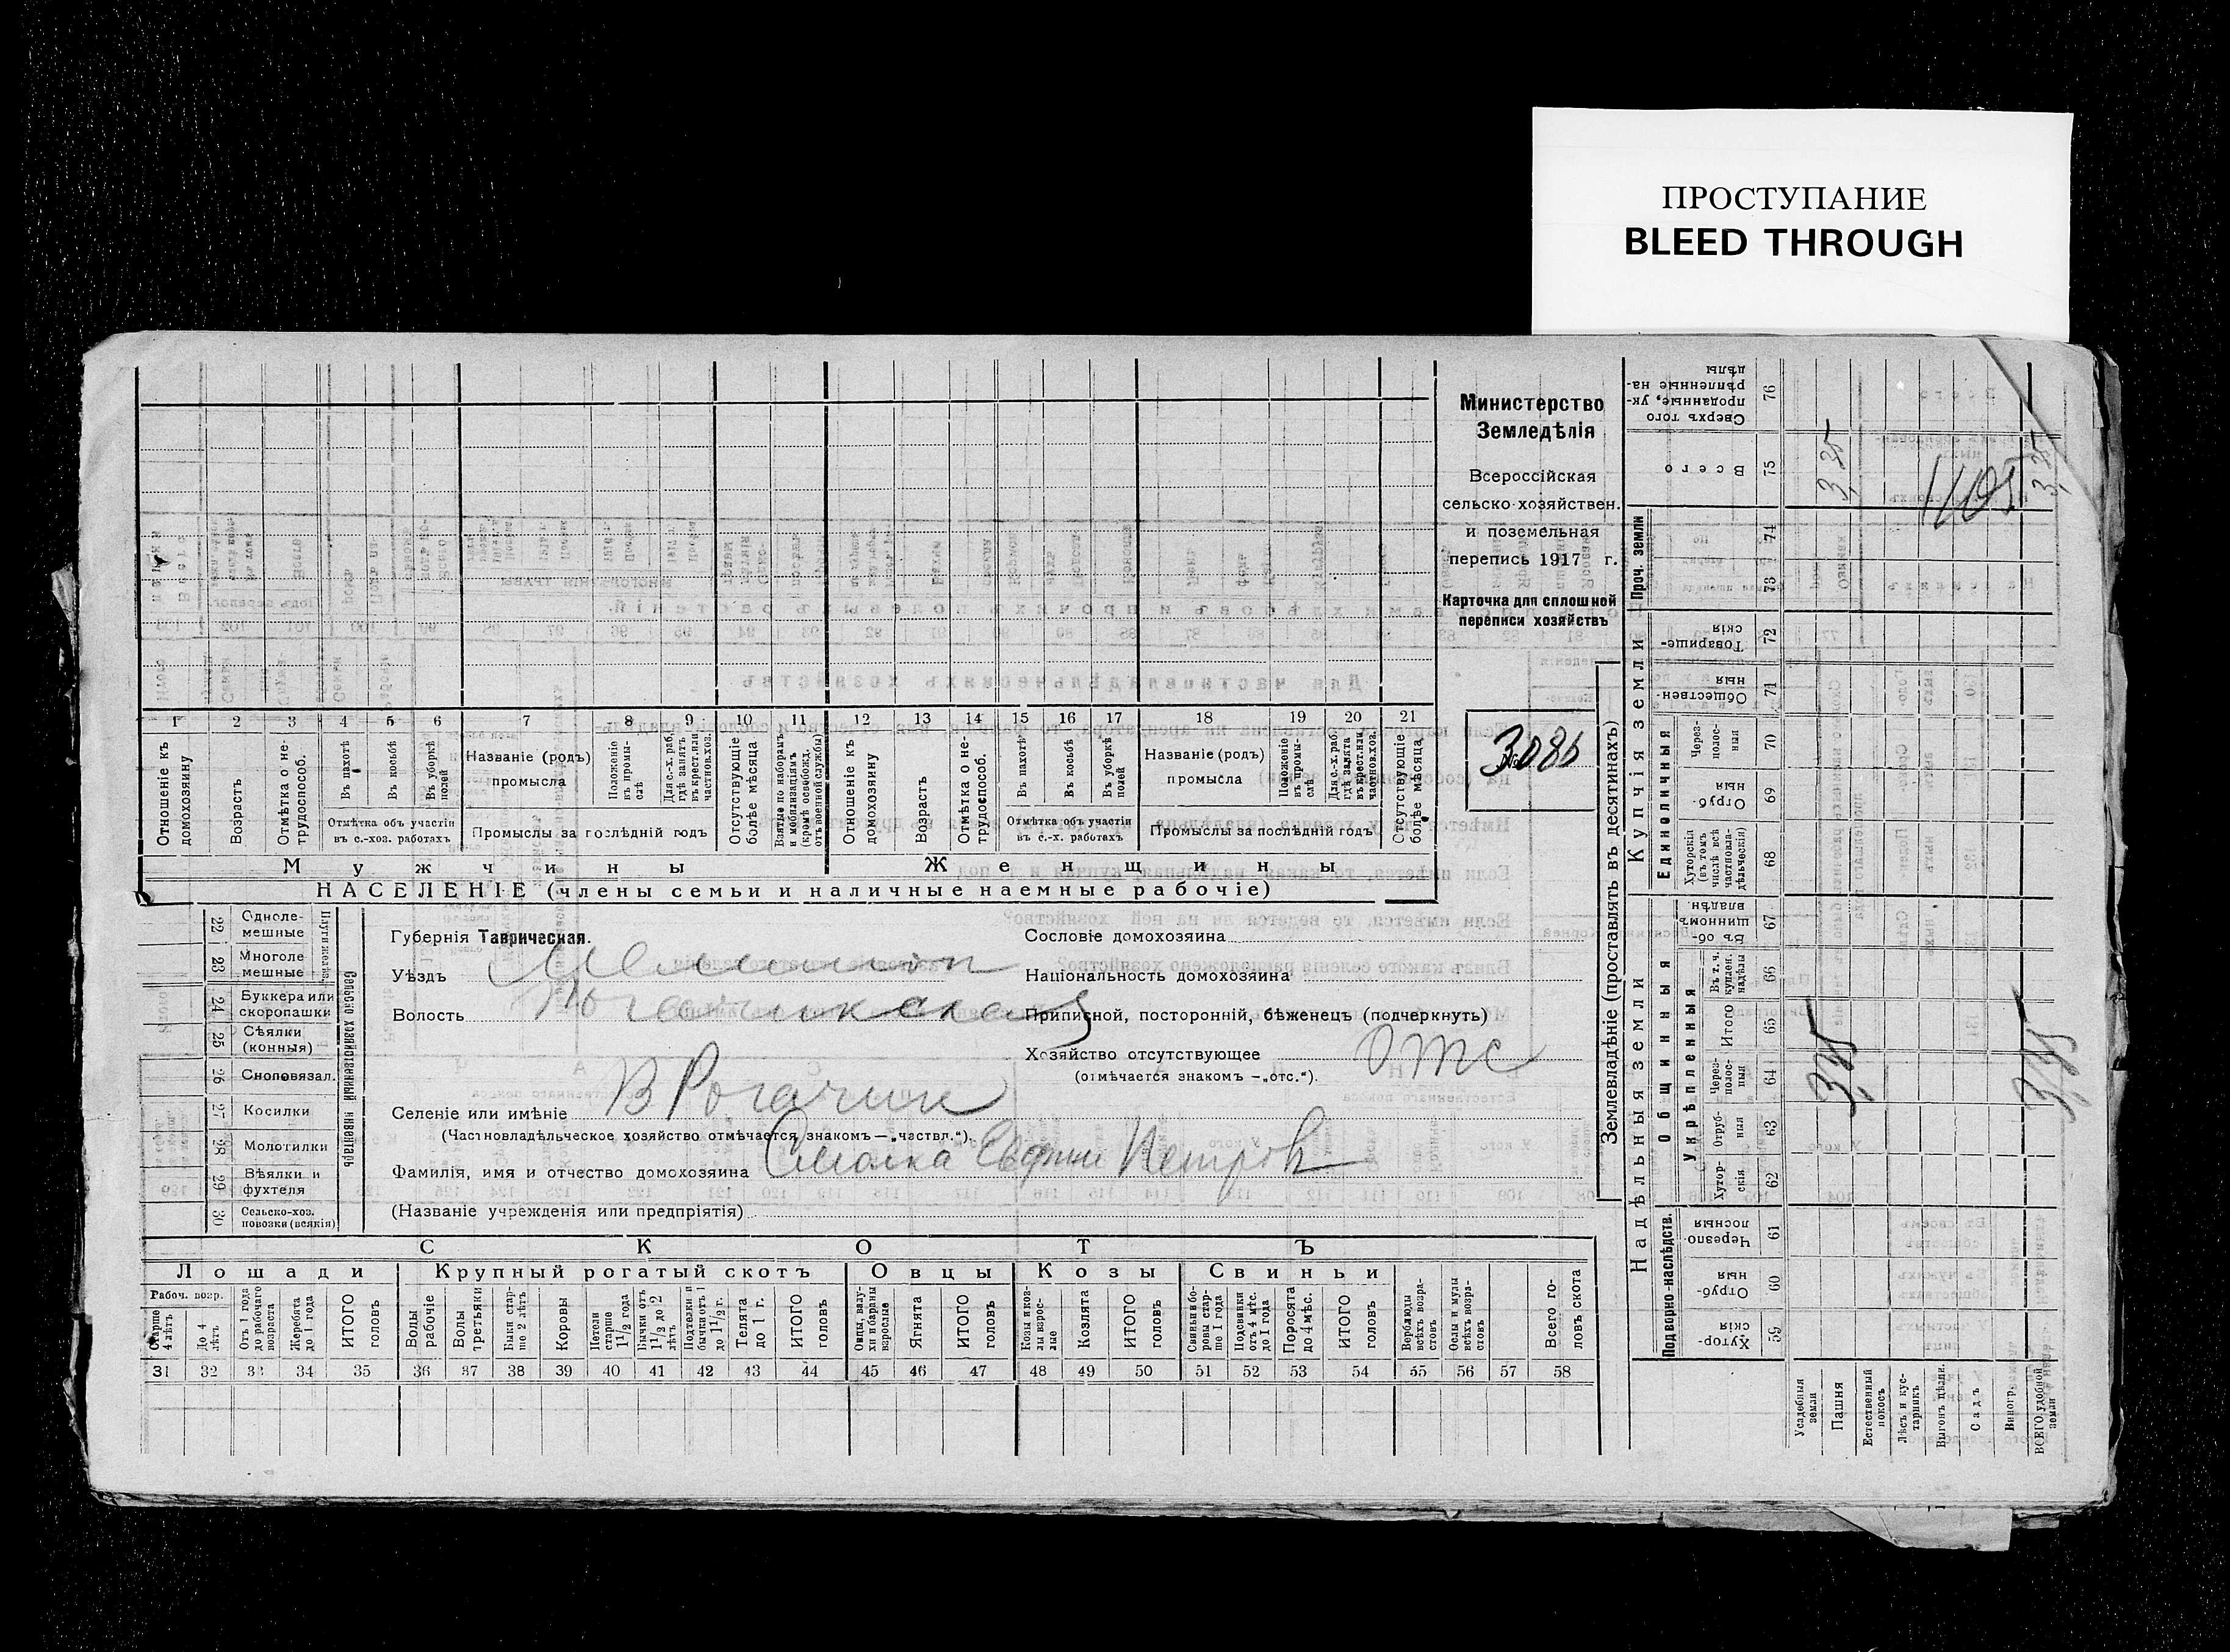 ПРОСТУПАНИЕ
BLEED THROUGH
Министерство
Земледѣлія
Всероссійская
сельско-хозяйствен.
и поземельная
перепись 1917 г.
Карточка для сплошной
переписи хозяйствъ
3086
1 2 3 4 5 6 7 8 9 10 11 12 13 14 15 16 17 18 19 20 21
Отношеніе къ домохозяину
Возрастъ
Отмѣтка о не-трудоспособ.
Въ пахотѣ
Въ косьбѣ
Въ уборкѣ полей
Отмѣтка объ участіи
въ с.-хоз. работахъ
Названіе (родъ)
промысла
Положеніе въ промы-слѣ
Для с.-х. раб. гдѣ занятъ въ крест. или частнов. хоз.
Промыслы за послѣдній годъ
Отсутствующіе болѣе мѣсяца
Взятые по наборамъ и мобилизаціямъ (кромѣ освобожд. отъ военной службы)
Отношеніе къ домохозяину
Возрастъ
Отмѣтка о не-трудоспособ.
Въ пахотѣ
Въ косьбѣ
Въ уборкѣ полей
Отмѣтка объ участіи
въ с.-х. работахъ
Названіе (родъ)
промысла
Положеніе въ промы-слѣ
Для с.-х. раб. гдѣ занята въ крест. или частнов. хоз.
Промыслы за послѣдній годъ
Отсутствующіе болѣе мѣсяца
Мужчины Женщины
НАСЕЛЕНІЕ (члены семьи и наличные наемные рабочіе)
22 Одноле-мешные
23 Многоле мешные
24 Буккера или скоропашки
25 Сѣялки (конныя)
26 Сноповязал.
27 Косилки
28 Молотилки
29 Вѣялки и фухтеля
30 Сельско-хоз. повозки (всякія)
Сельско хозяйственный инвентарь
Губернія Таврическая.
Уѣздъ
Волость Рогачикская
Селеніе или имѣніе В Рогачик
(Частновладѣльческое хозяйство отмѣчается знакомъ—„частвл.“).
Фамилія, имя и отчество домохозяина
(Названіе учрежденія или предпріятія)
Сословіе домохозяина
Національность домохозяина
Приписной, посторонній, бѣженецъ (подчеркнуть)
Хозяйство отсутствующее отс
(отмѣчается знакомъ —„отс.“).
СКОТЪ
Лошади Крупный рогатый скотъ Овцы Козы Свиньи
Рабоч. возр.
Старше 4 лѣтъ
До 4 лѣтъ
Отъ 1 года до рабочаго возраста
Жеребята до 1 года
ИТОГО головъ
Волы рабочіе
Волы третьяки
Быки стар-ше 2 лѣтъ
Коровы
Нетели старше 1 1/2 года
Бычки отъ 1 1/2 до 2 лѣтъ
Подтелки и бычки отъ 1 до 1 1/2 г.
Телята до 1 г.
ИТОГО головъ
Овцы, валу-хи и бараны взрослые
Ягнята
ИТОГО головъ
Козы и коз-лы взрос-лые
Козлята
ИТОГО головъ
Свиньи и бо-ровы стар-ше 1 года
Подсвинки отъ 4 мѣс. до 1 года
Поросята до 4 мѣс.
ИТОГО головъ
Верблюды всѣхъ возра-стовъ
Ослы и мулы всѣхъ возра-стовъ
Всего го-ловъ скота
31 32 33 34 35 36 37 38 39 40 41 42 43 44 45 46 47 48 49 50 51 52 53 54 55 56 57 58
Землевладѣніе (проставлять въ десятинахъ)
Надѣльныя земли
Купчія земли
Проч. земли
Подворно-наслѣдств.
Общинныя
Укрѣпленныя
Единоличныя
Сверхъ того проданные, ук-рѣпленные на-дѣлы 76
Всего 75
74
73
Товарище-скія 72
Обществен-ныя 71
Через-полос-ныя 70
Отруб-ныя 69
Хуторскія (въ томъ числѣ всѣ частновла-дѣльческія) 68
Въ об-щинномъ владѣн. 67
Въ т. ч. куплен. надѣлы 66
Итого 65
Через-полос-ныя 64
Отруб-ныя 63
Хутор-скія 62
Черезпо-лосныя 61
Отруб-ныя 60
Хутор-скія 59
Усадебныя земли
Пашня
Естественный покосъ
Лѣсъ и кус-тарникъ
Выгонъ цѣлин.
Садъ
Виногр.
ВСЕГО удобной земли